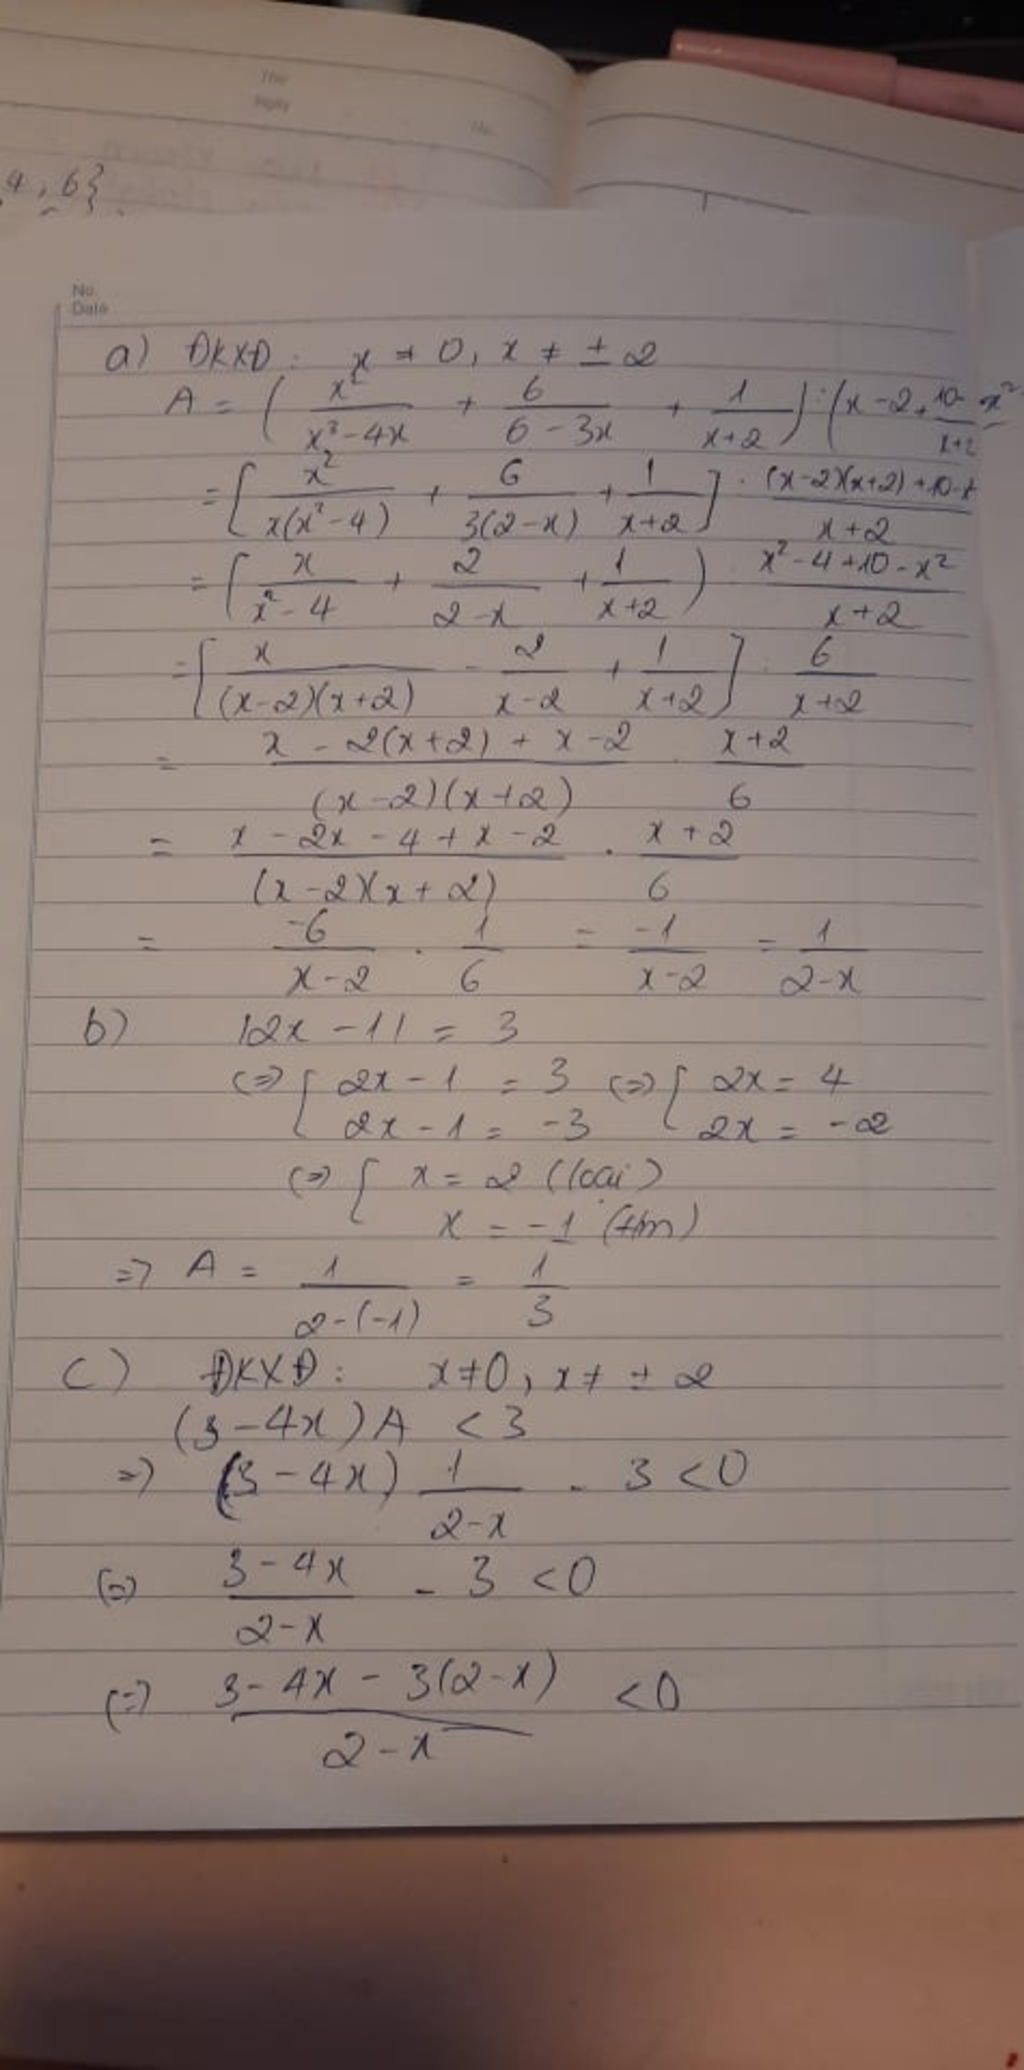 4, 6}
No.
Date
a) ĐKXĐ: x ≠ 0, x ≠ ± 2
A = ( x²/(x³ - 4x) + 6/(6 - 3x) + 1/(x+2) ) : (x - 2 + (10 - x²)/(x+2)
= [ x²/(x(x² - 4)) + 6/(3(2 - x)) + 1/(x+2) ] : ((x-2)(x+2) + 10 - x)/(x+2)
= ( x/(x² - 4) + 2/(2 - x) + 1/(x+2) ) : (x² - 4 + 10 - x²)/(x+2)
= [ x/((x-2)(x+2)) - 2/(x-2) + 1/(x+2) ] : 6/(x+2)
= (x - 2(x+2) + x - 2)/((x-2)(x+2)) . (x+2)/6
= (x - 2x - 4 + x - 2)/((x-2)(x+2)) . (x+2)/6
= -6/(x-2) . 1/6 = -1/(x-2) = 1/(2-x)
b) |2x - 1| = 3
(=> [ 2x - 1 = 3 (=> [ 2x = 4
2x - 1 = -3 2x = -2
(=> [ x = 2 (loại)
x = -1 (t/m)
=> A = 1/(2-(-1)) = 1/3
c) ĐKXĐ: x ≠ 0, x ≠ ± 2
(3 - 4x)A < 3
=> (3 - 4x) 1/(2-x) - 3 < 0
(=) (3 - 4x)/(2-x) - 3 < 0
(=) (3 - 4x - 3(2-x))/(2-x) < 0